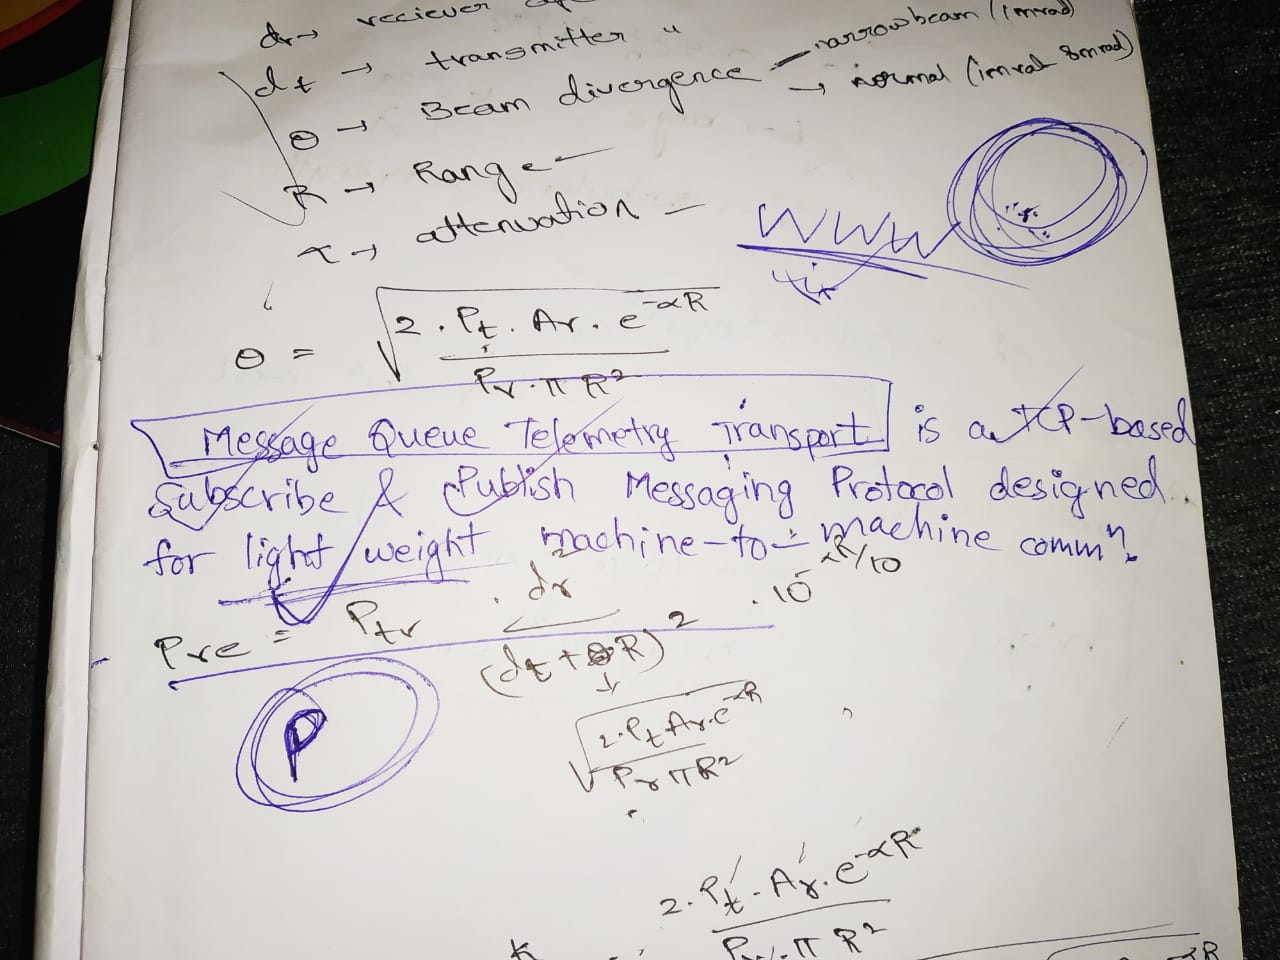 dr → reciever
dt → transmitter "
θ → Beam divergence → narrowbeam (1mrad)
→ normal (1mrad 8mrad)
R → Range
α → attenuation
WWW
θ = √2 · Pt · Ar · e^-αR / Pr · π R²
Message Queue Telemetry Transport is a TCP-based
Subscribe & Publish Messaging Protocol designed
for light weight machine-to-machine commⁿ.
Pre = Ptr · dr² / (dt + θR)² · 10^-αR/10
√2·Pt Ar·e^-αR / Pr π R²
P
2·Pt · Ar · e^-αR / Pr · π R²